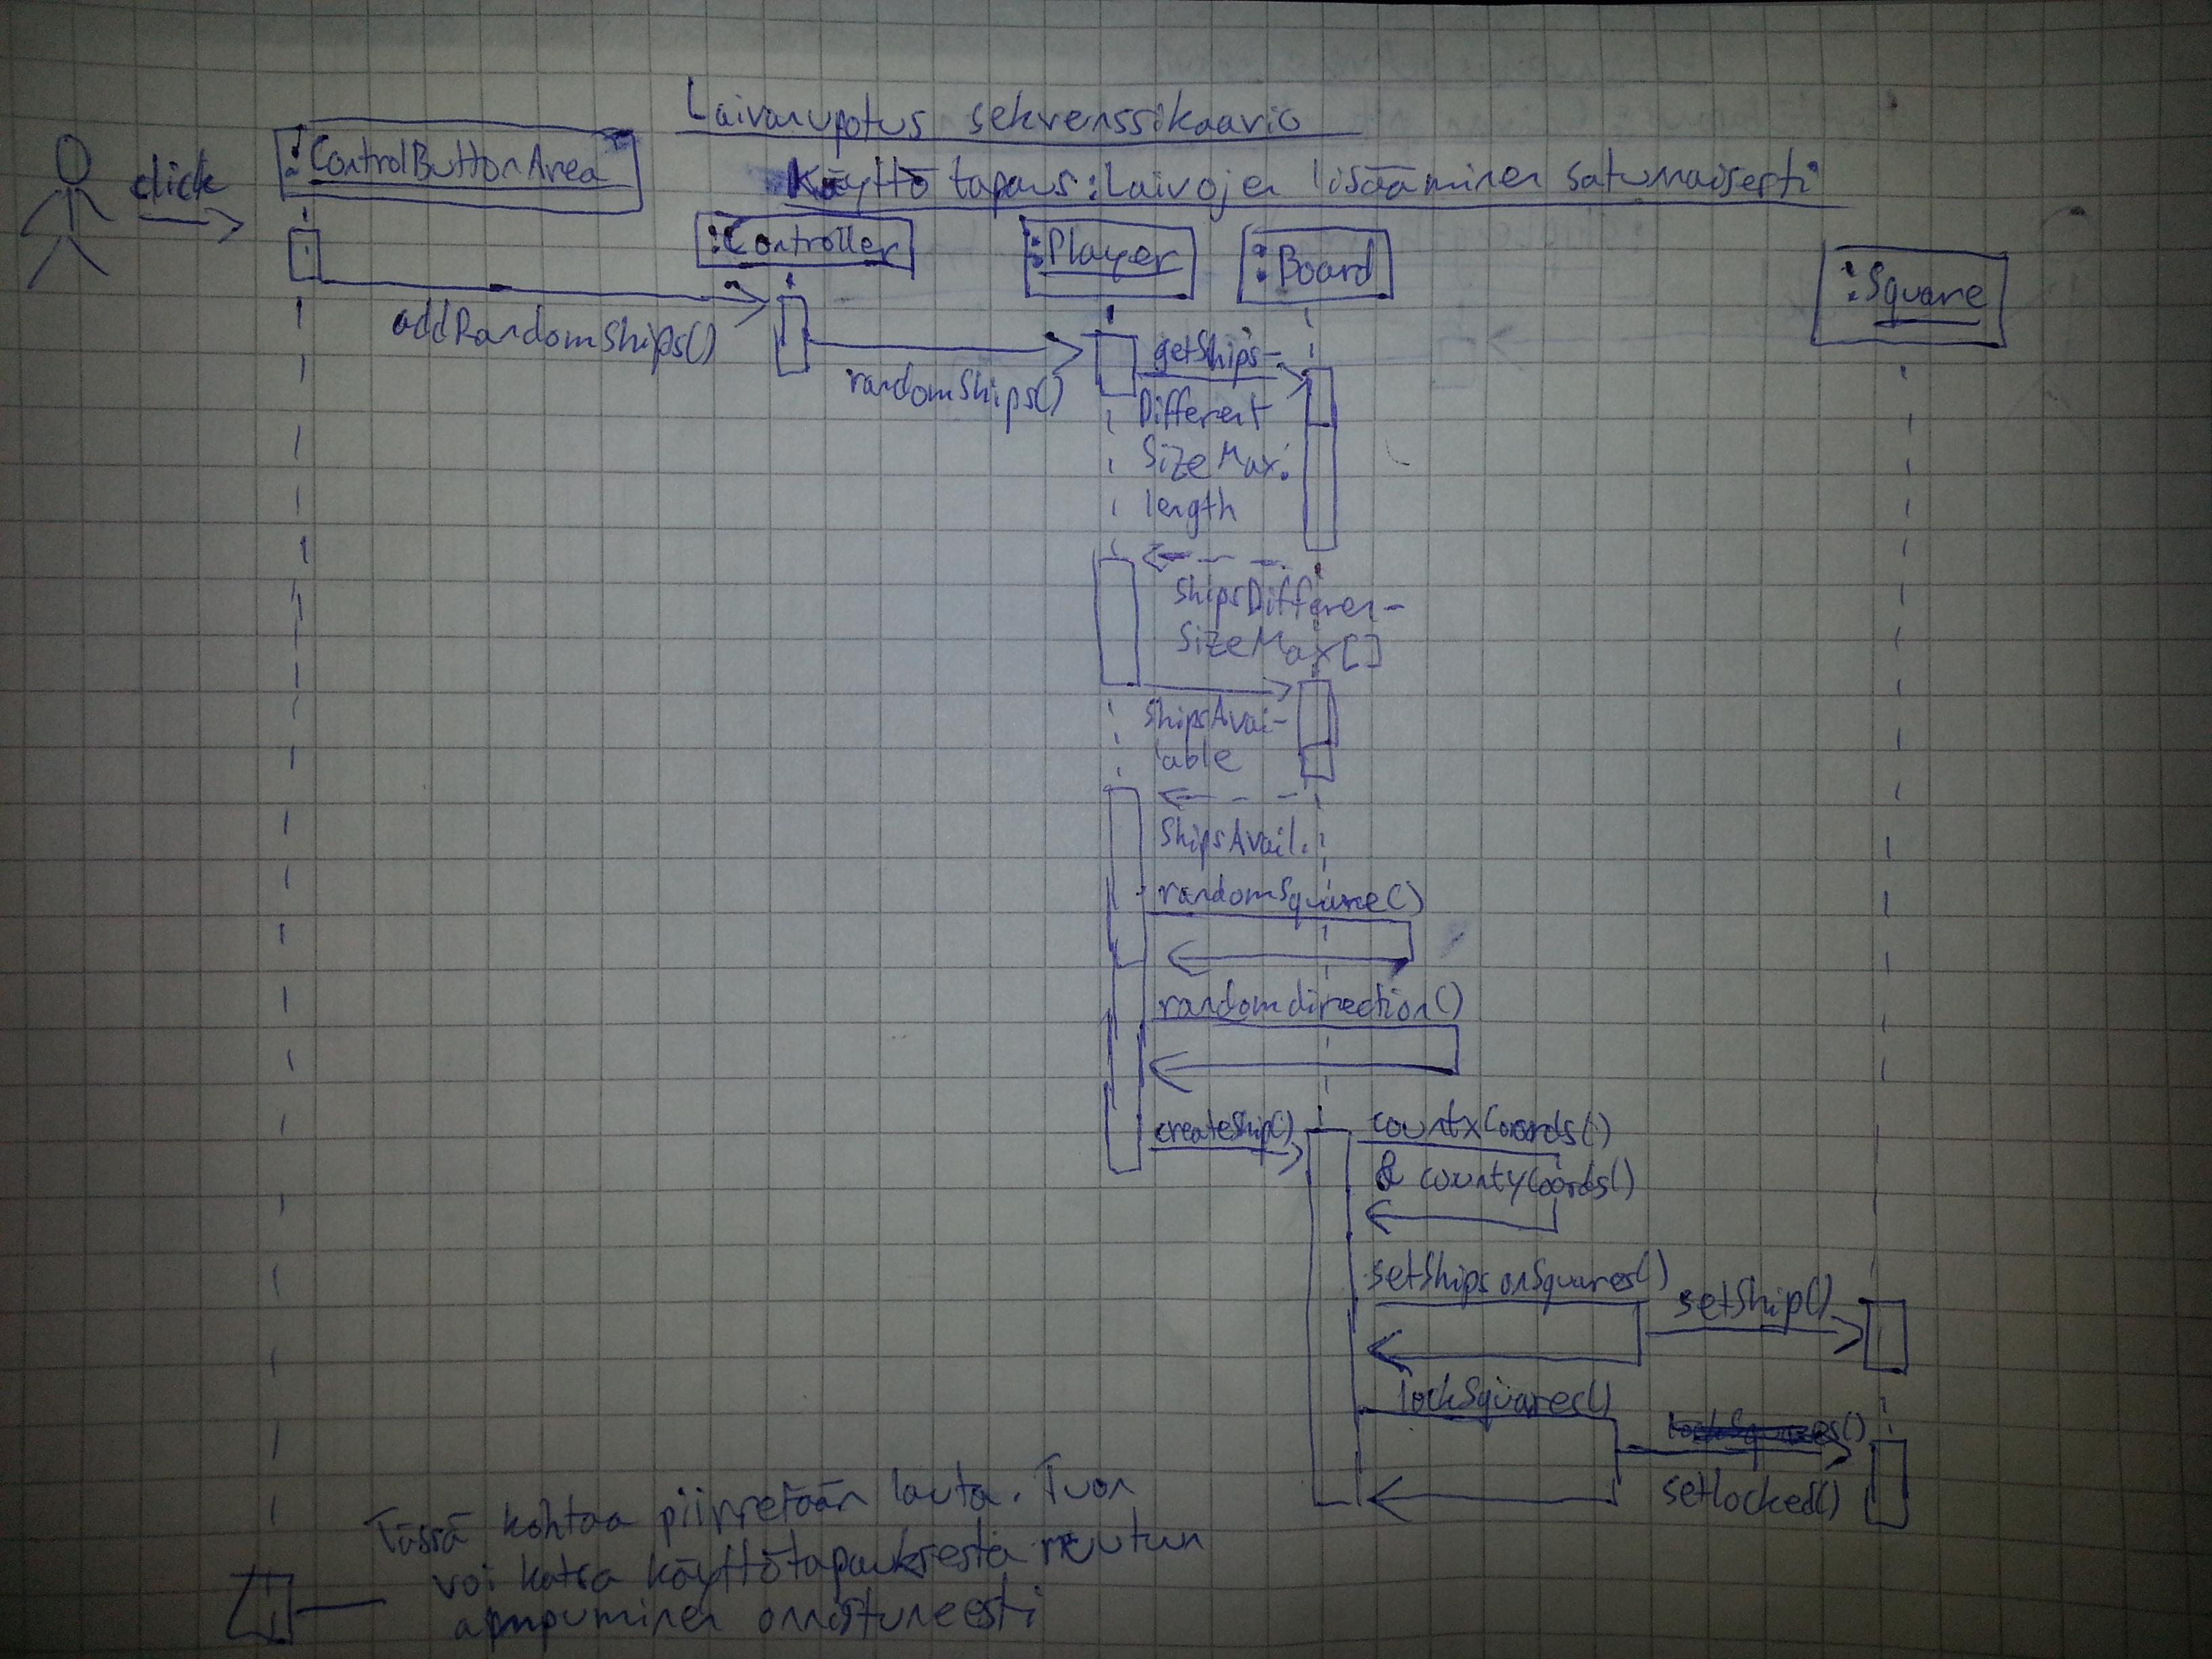 Laivanupotus sekvenssikaavio
Käyttötapaus: Laivojen lisääminen satunnaisesti
click
:ControlButtonArea
:Controller
:Player
:Board
:Square
addRandomShips()
randomShips()
getShips-
Different
SizeMax.
length
ShipsDifferen-
SizeMax[]
ShipsAvai-
lable
ShipsAvail.
randomSquare()
randomdirection()
createShip()
countxCoords()
& countyCoords()
setShipsonSquares()
setShip()
lockSquares()
setLocked()
Tässä kohtaa piirretään lauta. Tuon
voi katsoa käyttötapauksesta ruutuun
ampuminen onnistuneesti